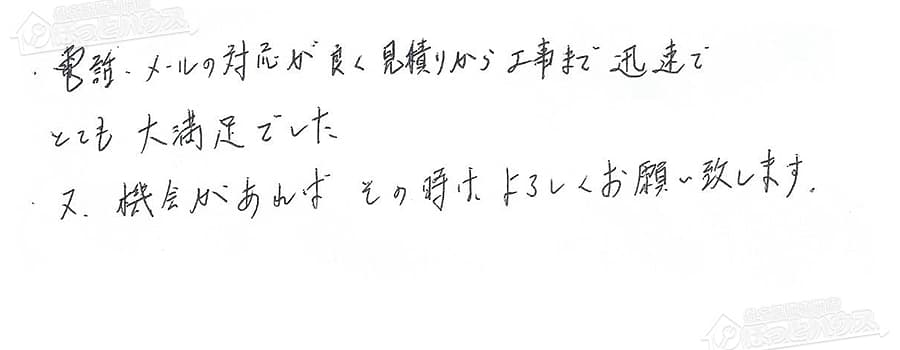 ・電話・メールの対応が良く見積りから工事まで迅速で
とても大満足でした
・又、機会があれば その時は、よろしくお願い致します。